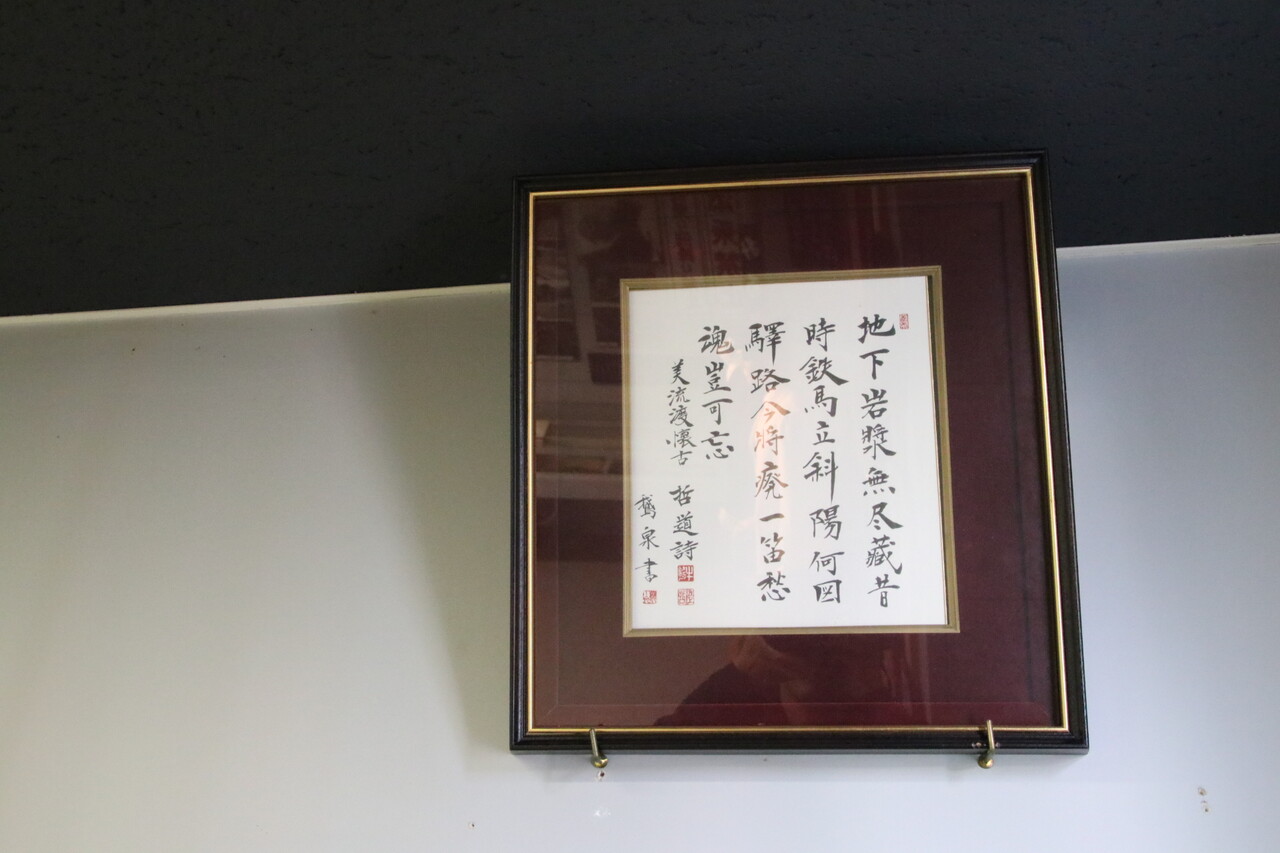 地下岩漿無尽藏昔
時鉄馬立斜陽何図
驛路今将廃一笛愁
魂豈可忘
美流渡懐古 哲道詩
鵞泉書